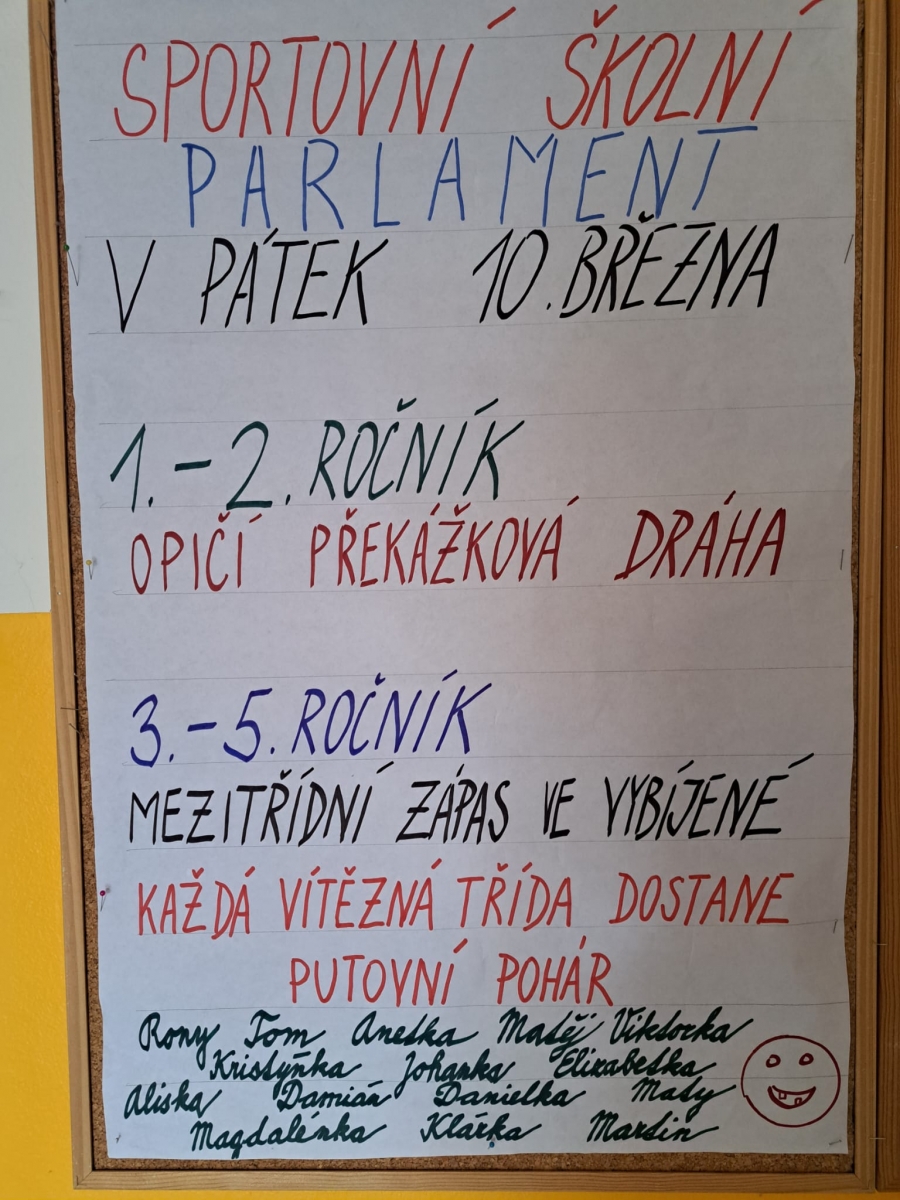 SPORTOVNÍ ŠKOLNÍ
PARLAMENT
V PÁTEK 10. BŘEZNA
1.-2. ROČNÍK
OPIČÍ PŘEKÁŽKOVÁ DRÁHA
3.-5. ROČNÍK
MEZITŘÍDNÍ ZÁPAS VE VYBÍJENÉ
KAŽDÁ VÍTĚZNÁ TŘÍDA DOSTANE
PUTOVNÍ POHÁR
Rony Tom Anetka Matěj Viktorka
Kristýnka Johanka Elizabetka
Aliska Damián Danielka Maty
Magdalénka Klárka Martin